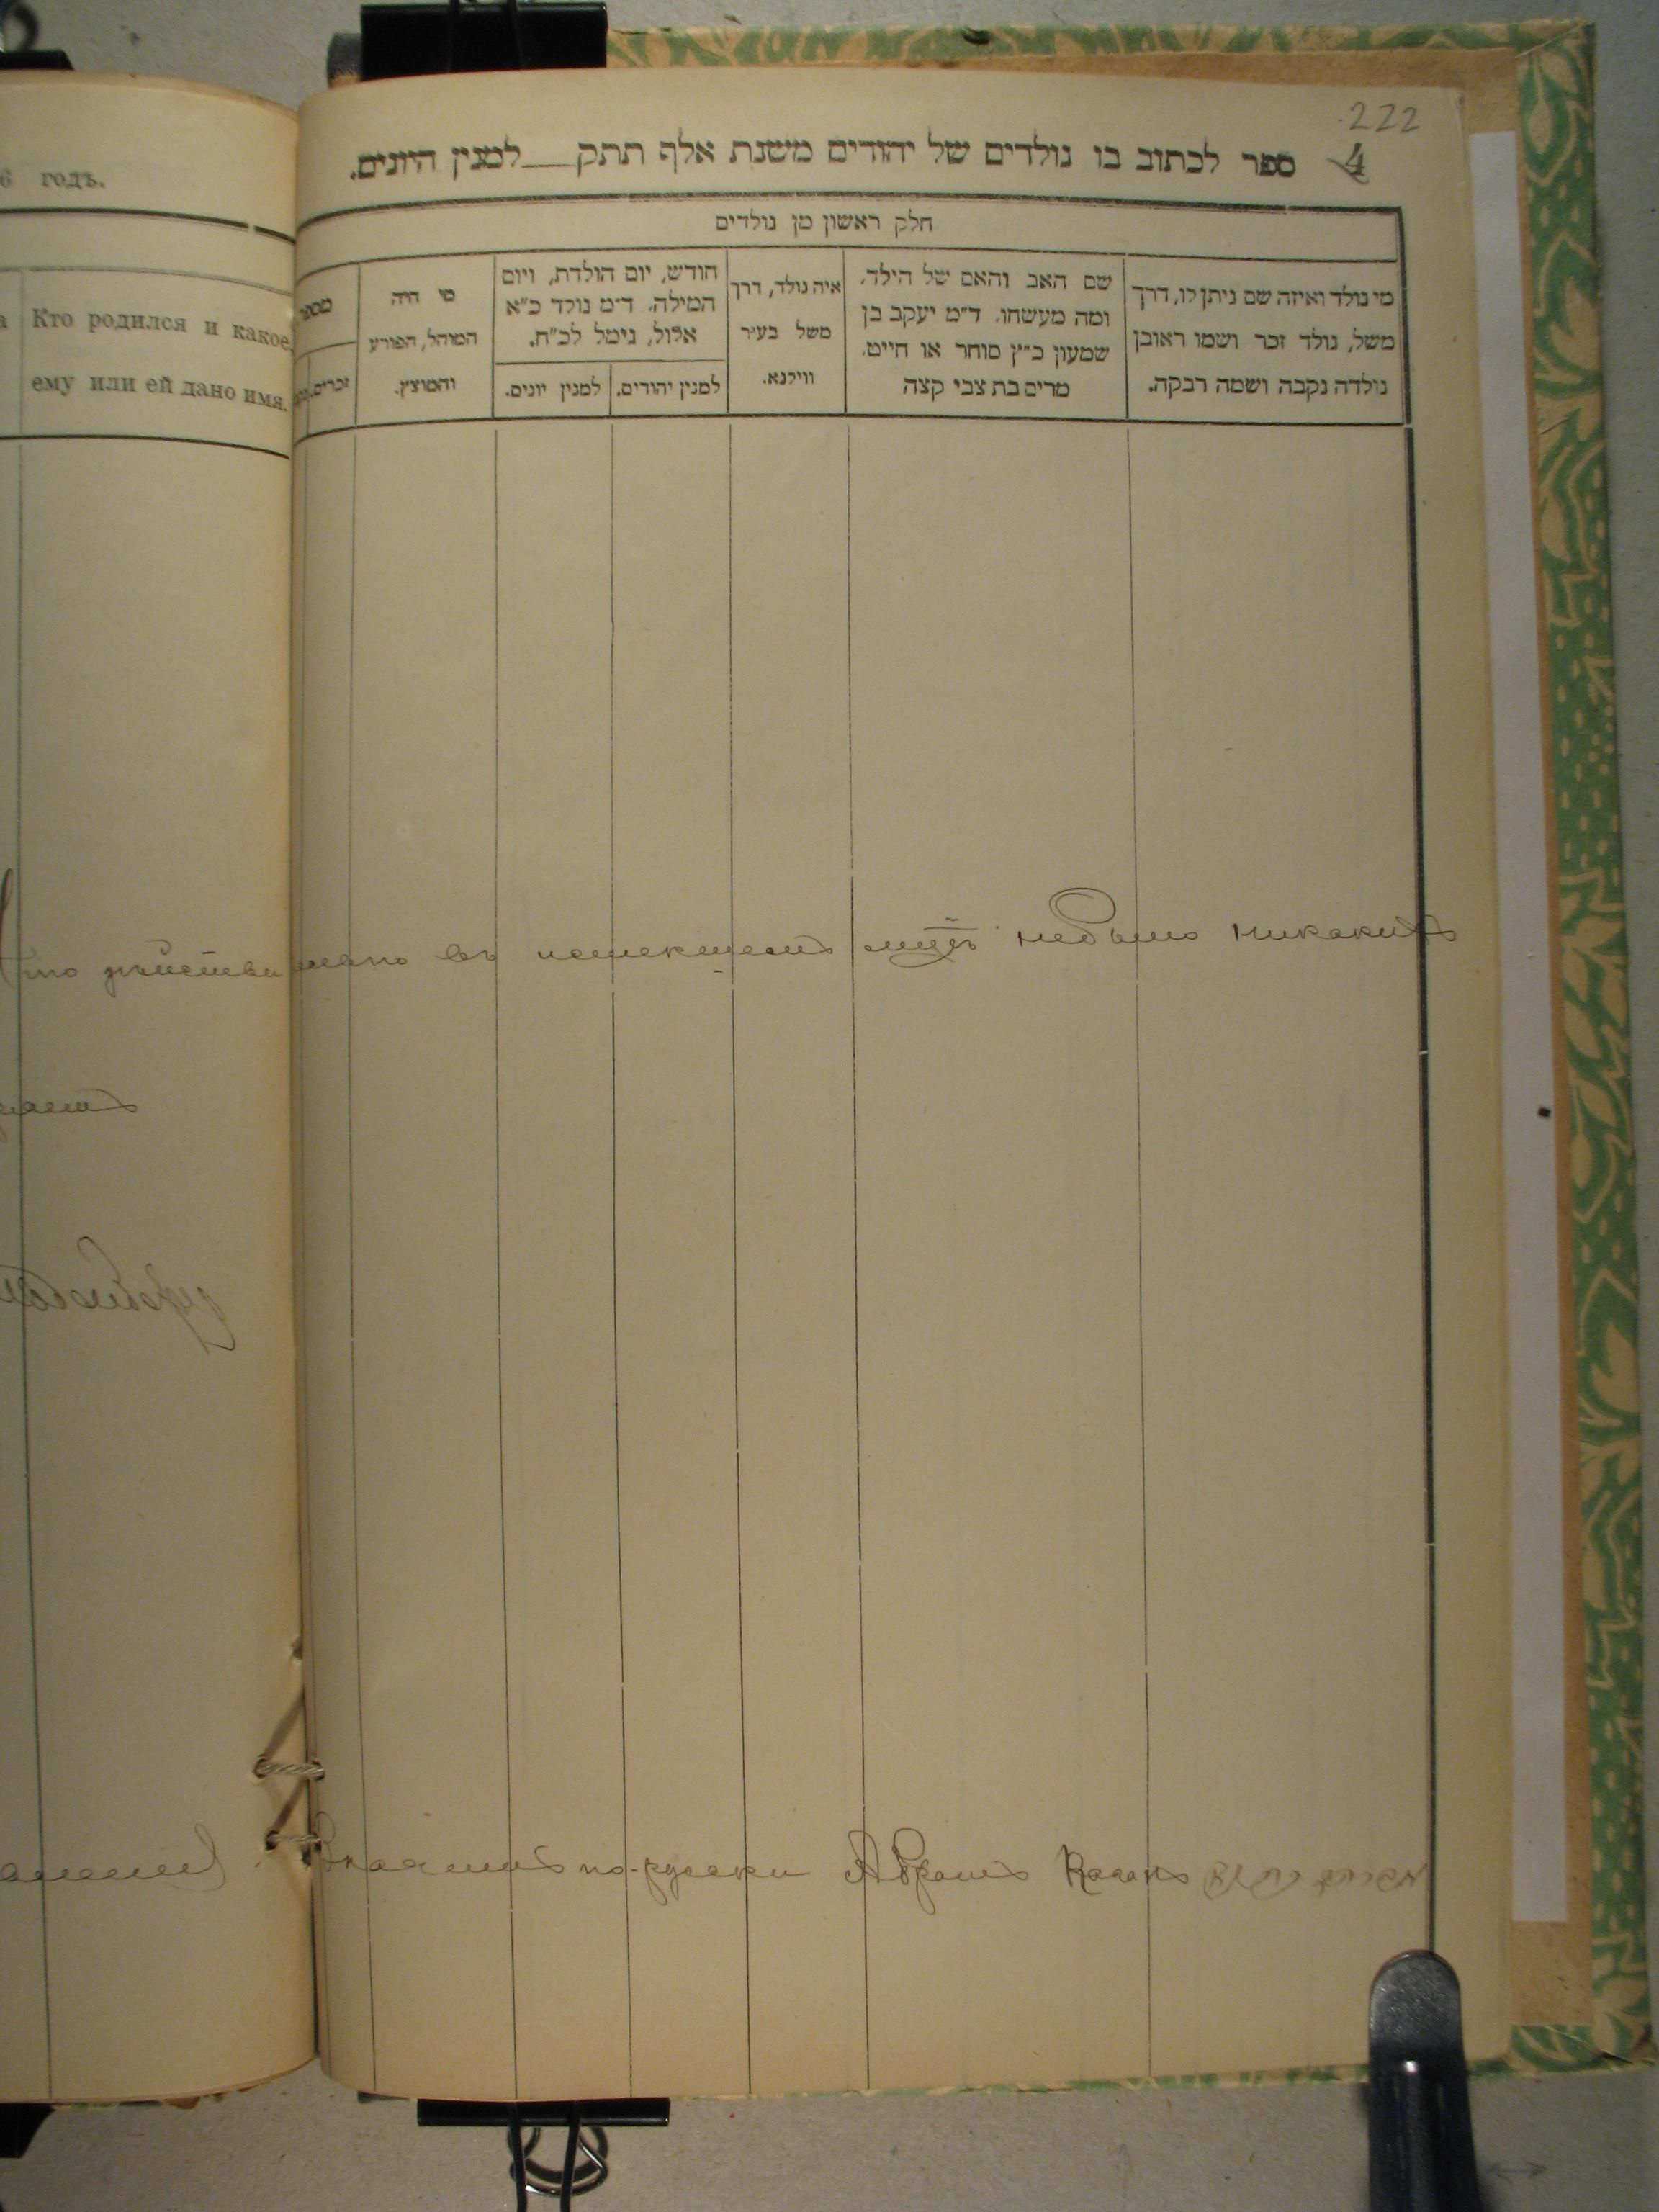 222
4
ספר לכתוב בו נולדים של יהודים משנת אלף תתק__למנין היונים.
חלק ראשון מן נולדים
מי נולד ואיזה שם ניתן לו, דרך
משל, נולד זכר ושמו ראובן
נולדה נקבה ושמה רבקה.
שם האב והאם של הילד,
ומה מעשהו. ד״מ יעקב בן
שמעון כ״ץ סוחר או חייט,
מרים בת צבי קצה
איה נולד, דרך
משל בעיר
ווילנא.
חודש, יום הולדת, ויום
המילה. ד״מ נולד כ״א
אלול, נימל לכ״ח.
למנין יהודים.
למנין יונים.
מי היה
המוהל, הפורע
והמוצץ.
מספר
זכרים.
6 годъ.
Кто родился и какое
ему или ей дано имя.
Что действительно въ истекшемъ небыло никакихъ
по-русски Абрамъ Каганъ